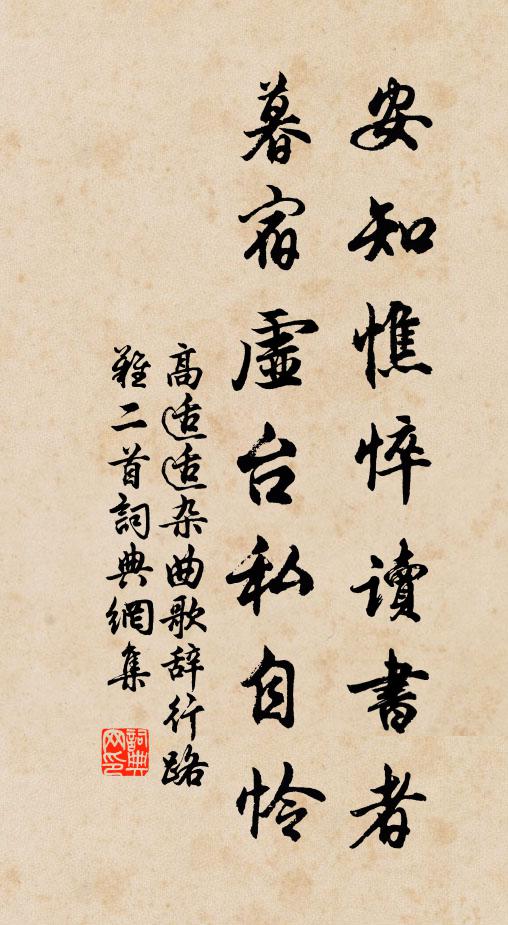 安知憔悴讀書者
暮宿虛台私自憐
高适适杂曲歌辞行路
難二首詞典網集
詞典
网印